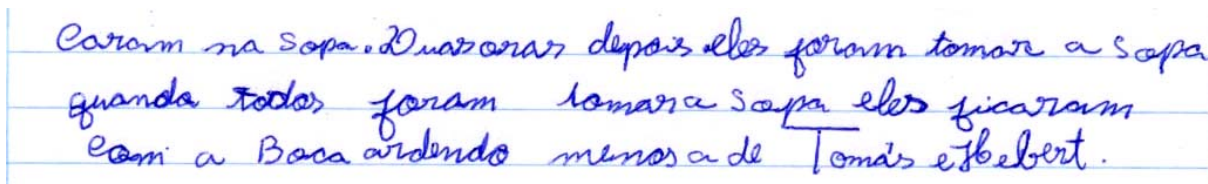 caram na sopa. Duas oras depois eles foram tomar a sopa
quando todos foram tomar a sopa eles ficaram
com a Boca ardendo menos a de Tomás e Hebert.